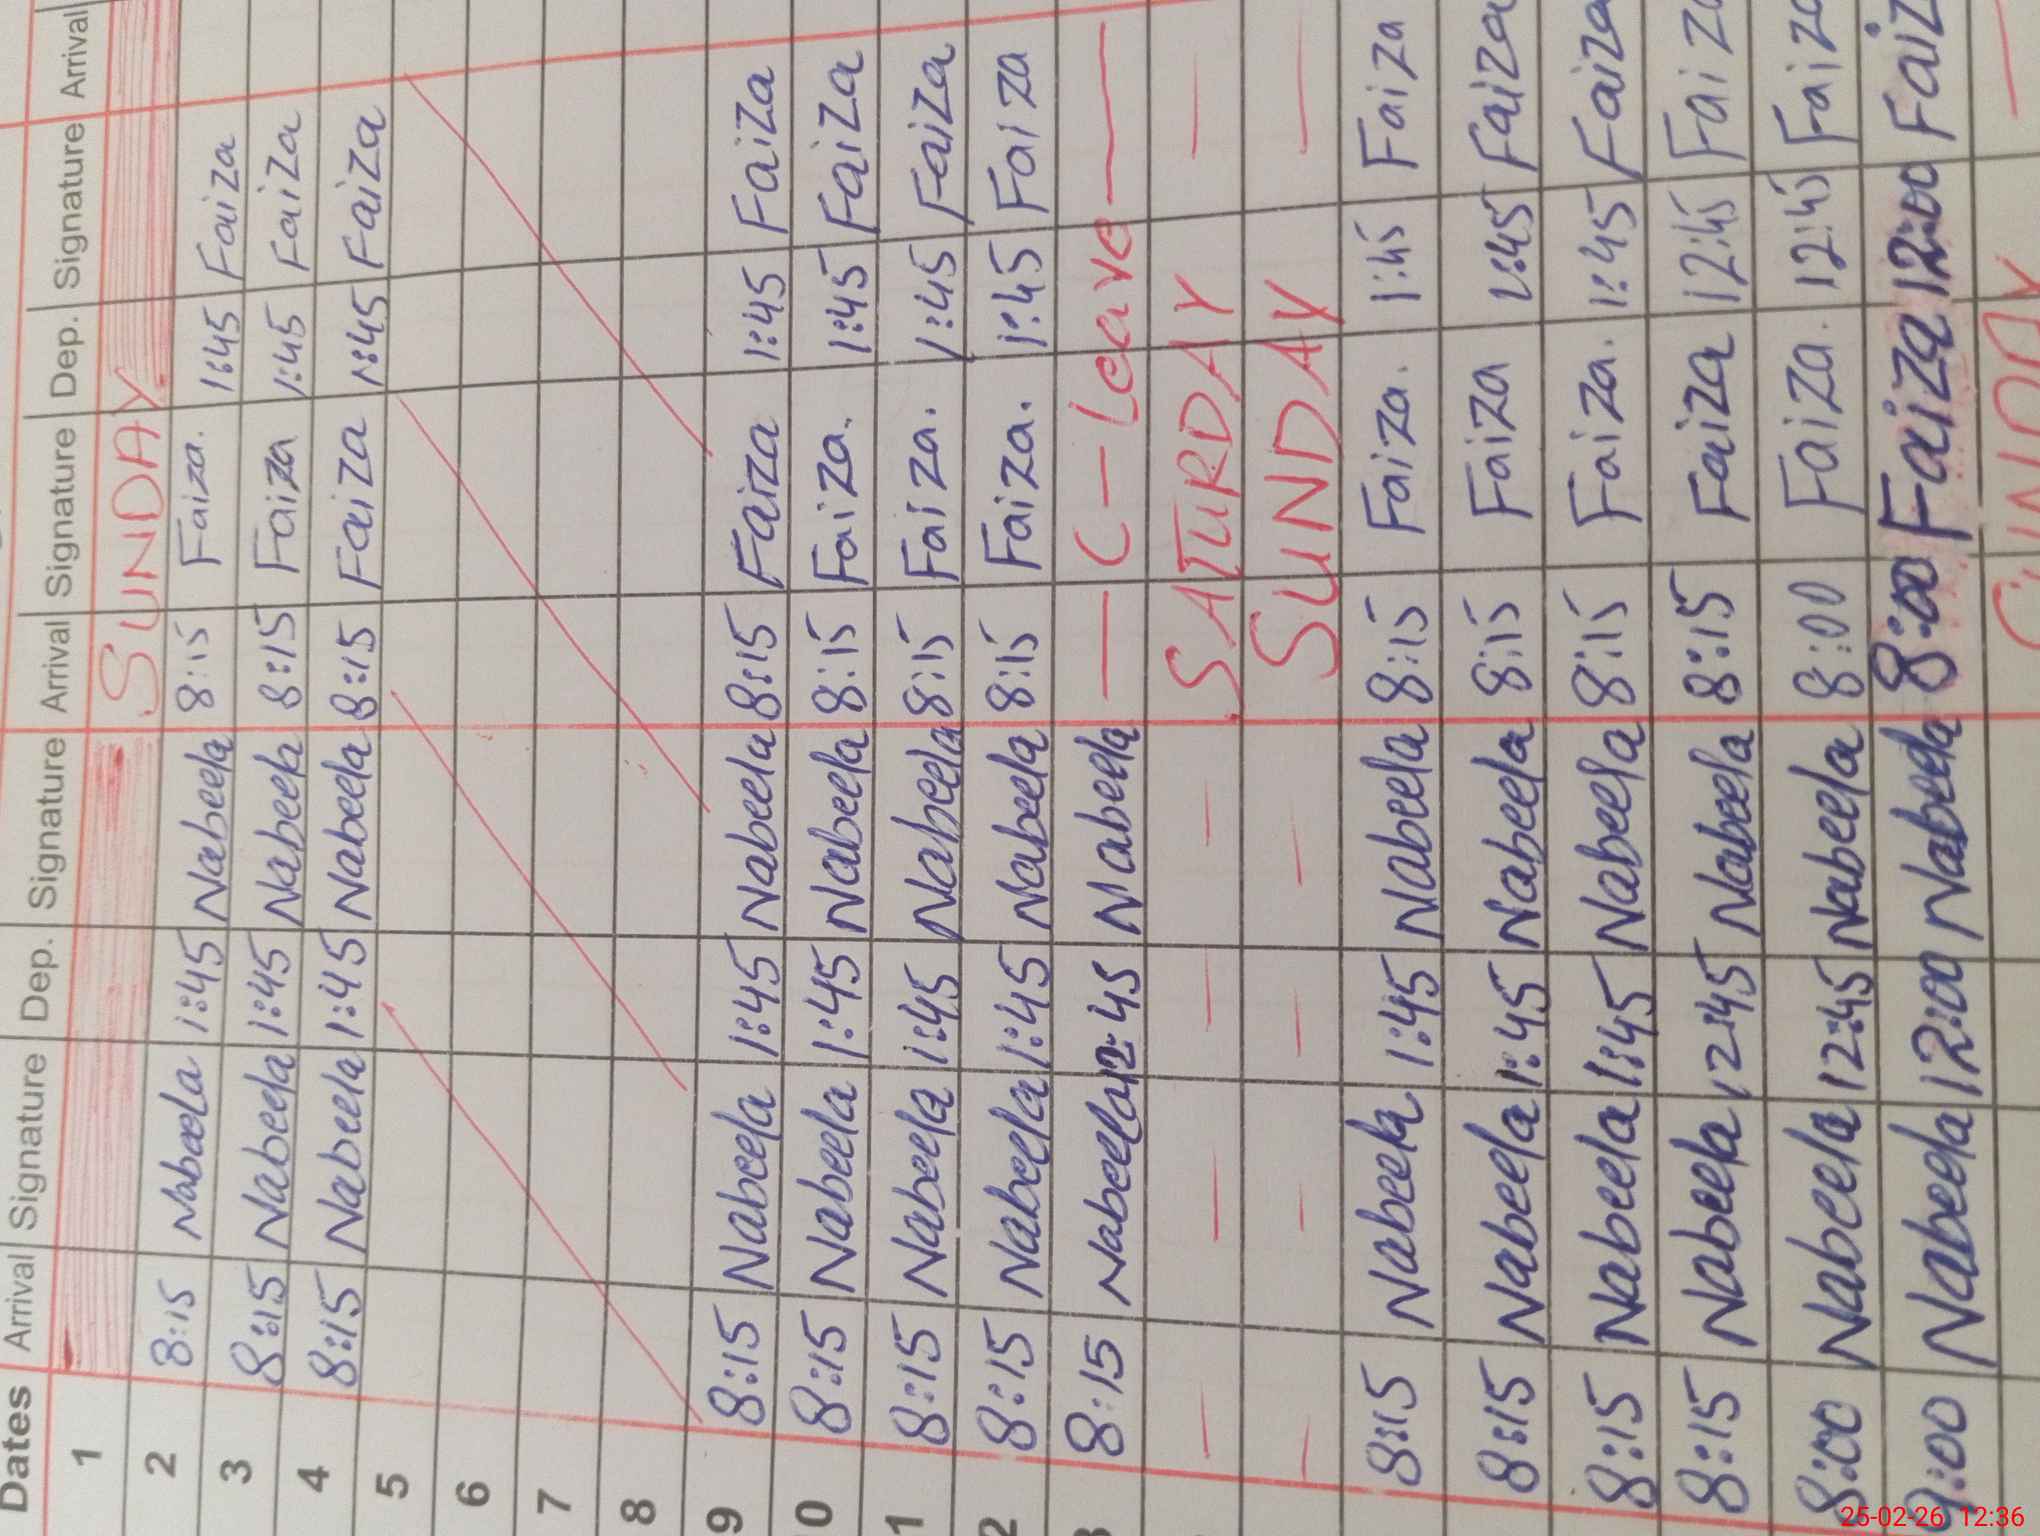 Dates Arrival Signature Dep. Signature Arrival Signature Dep. Signature Arrival
1 SUNDAY
2 8:15 Nabeela 1:45 Nabeela 8:15 Faiza. 1:45 Faiza
3 8:15 Nabeela 1:45 Nabeela 8:15 Faiza 1:45 Faiza
4 8:15 Nabeela 1:45 Nabeela 8:15 Faiza 1:45 Faiza
5
6
7
8
9 8:15 Nabeela 1:45 Nabeela 8:15 Faiza 1:45 Faiza
0 8:15 Nabeela 1:45 Nabeela 8:15 Faiza. 1:45 Faiza
1 8:15 Nabeela 1:45 Nabeela 8:15 Faiza. 1:45 Faiza
2 8:15 Nabeela 1:45 Nabeela 8:15 Faiza. 1:45 Faiza
8:15 Nabeela 12:45 Nabeela — C-Leave —
— — — — SATURDAY —
— — — — SUNDAY —
8:15 Nabeela 1:45 Nabeela 8:15 Faiza. 1:45 Faiza
8:15 Nabeela 1:45 Nabeela 8:15 Faiza 1:45 Faiza
8:15 Nabeela 1:45 Nabeela 8:15 Faiza. 1:45 Faiza
8:15 Nabeela 12:45 Nabeela 8:15 Faiza 12:45 Faiza
8:00 Nabeela 12:45 Nabeela 8:00 Faiza. 12:45 Faiza
Nabeela 12:00 Nabeela 8:00 Faiza 12:00 Faiz
SUNDAY —
25-02-26 12:36